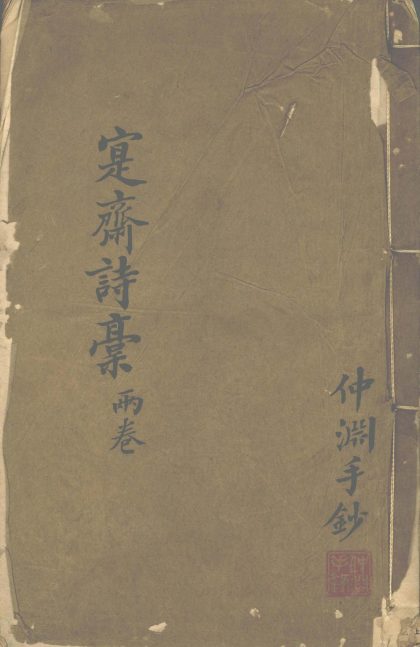 寔齋詩稾 兩卷
仲淵手鈔